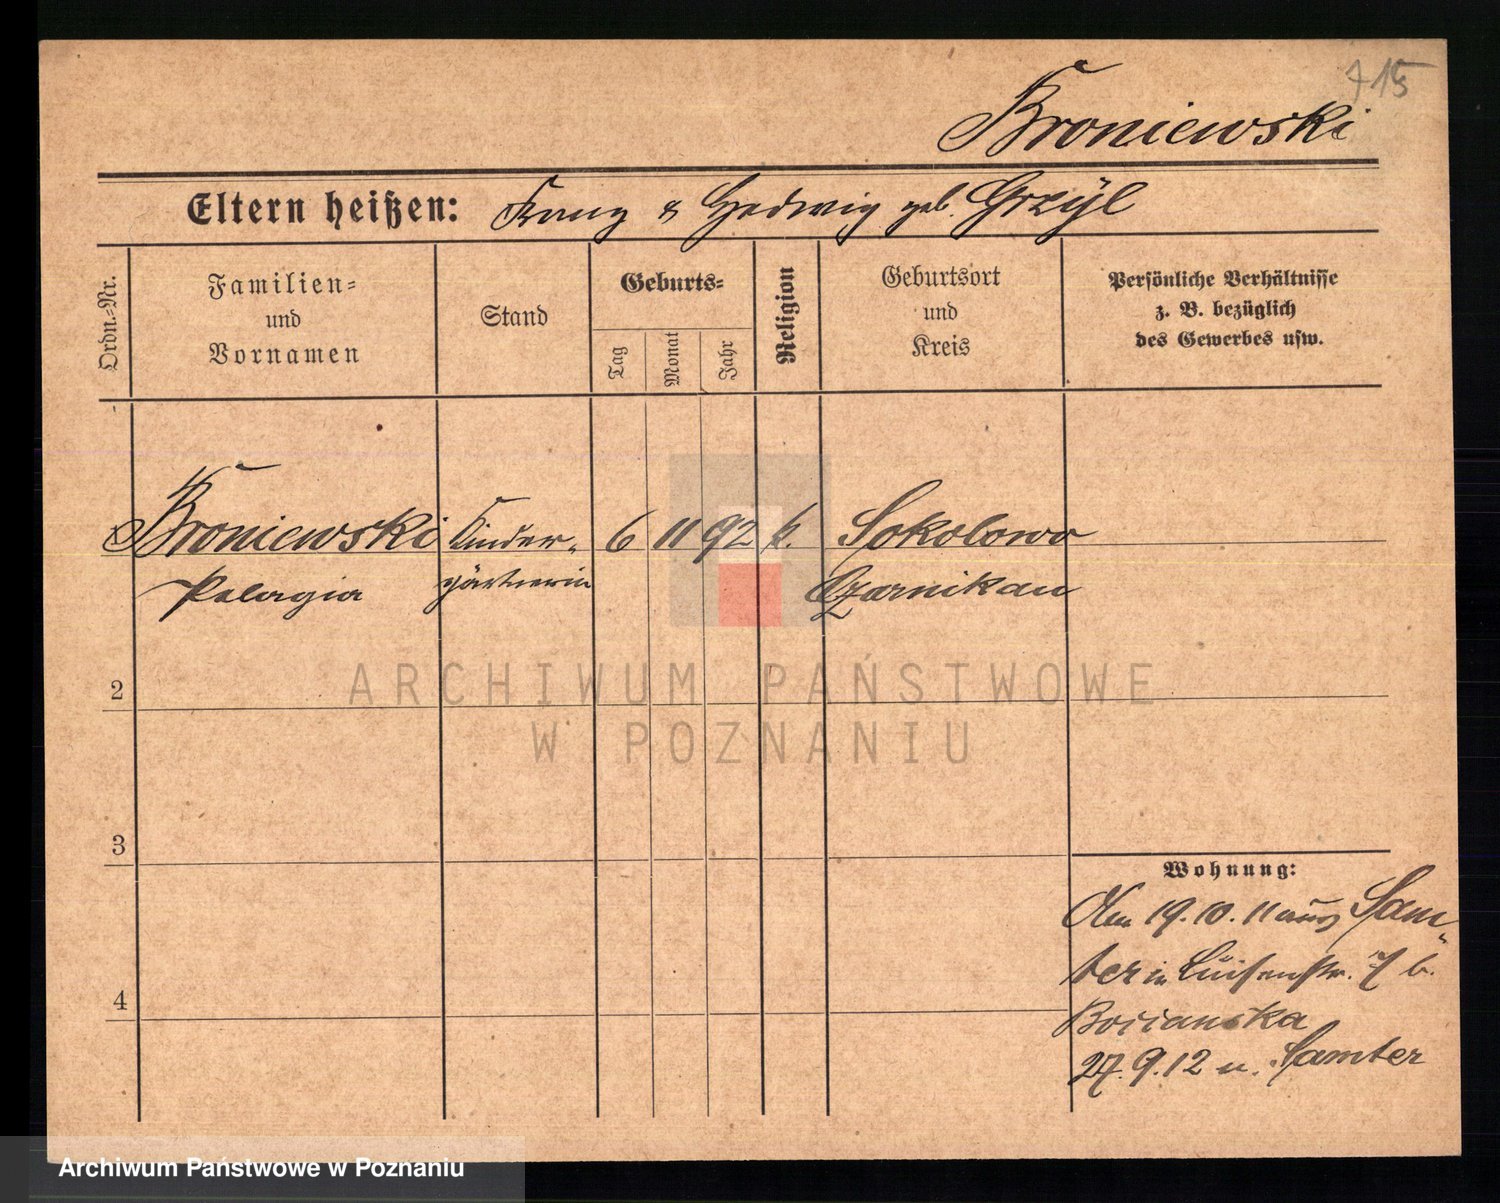 715
Broniewski
Eltern heißen: Franz & Hedwig geb. Grzyl
Ordn.-Nr.
Familien-
und
Vornamen
Stand
Geburts-
Tag
Monat
Jahr
Religion
Geburtsort
und
Kreis
Persönliche Verhältnisse
z. B. bezüglich
des Gewerbes usw.
Broniewski Kinder- 6 11 92 k. Sokolowo
Pelagia gärtnerin Czarnikau
ARCHIWUM PAŃSTWOWE
W POZNANIU
2
3
4
Wohnung:
Am 19.10.11 aus Sam-
ter in Luisenstr. b.
Bocianska
27.9.12 n. Samter
Archiwum Państwowe w Poznaniu